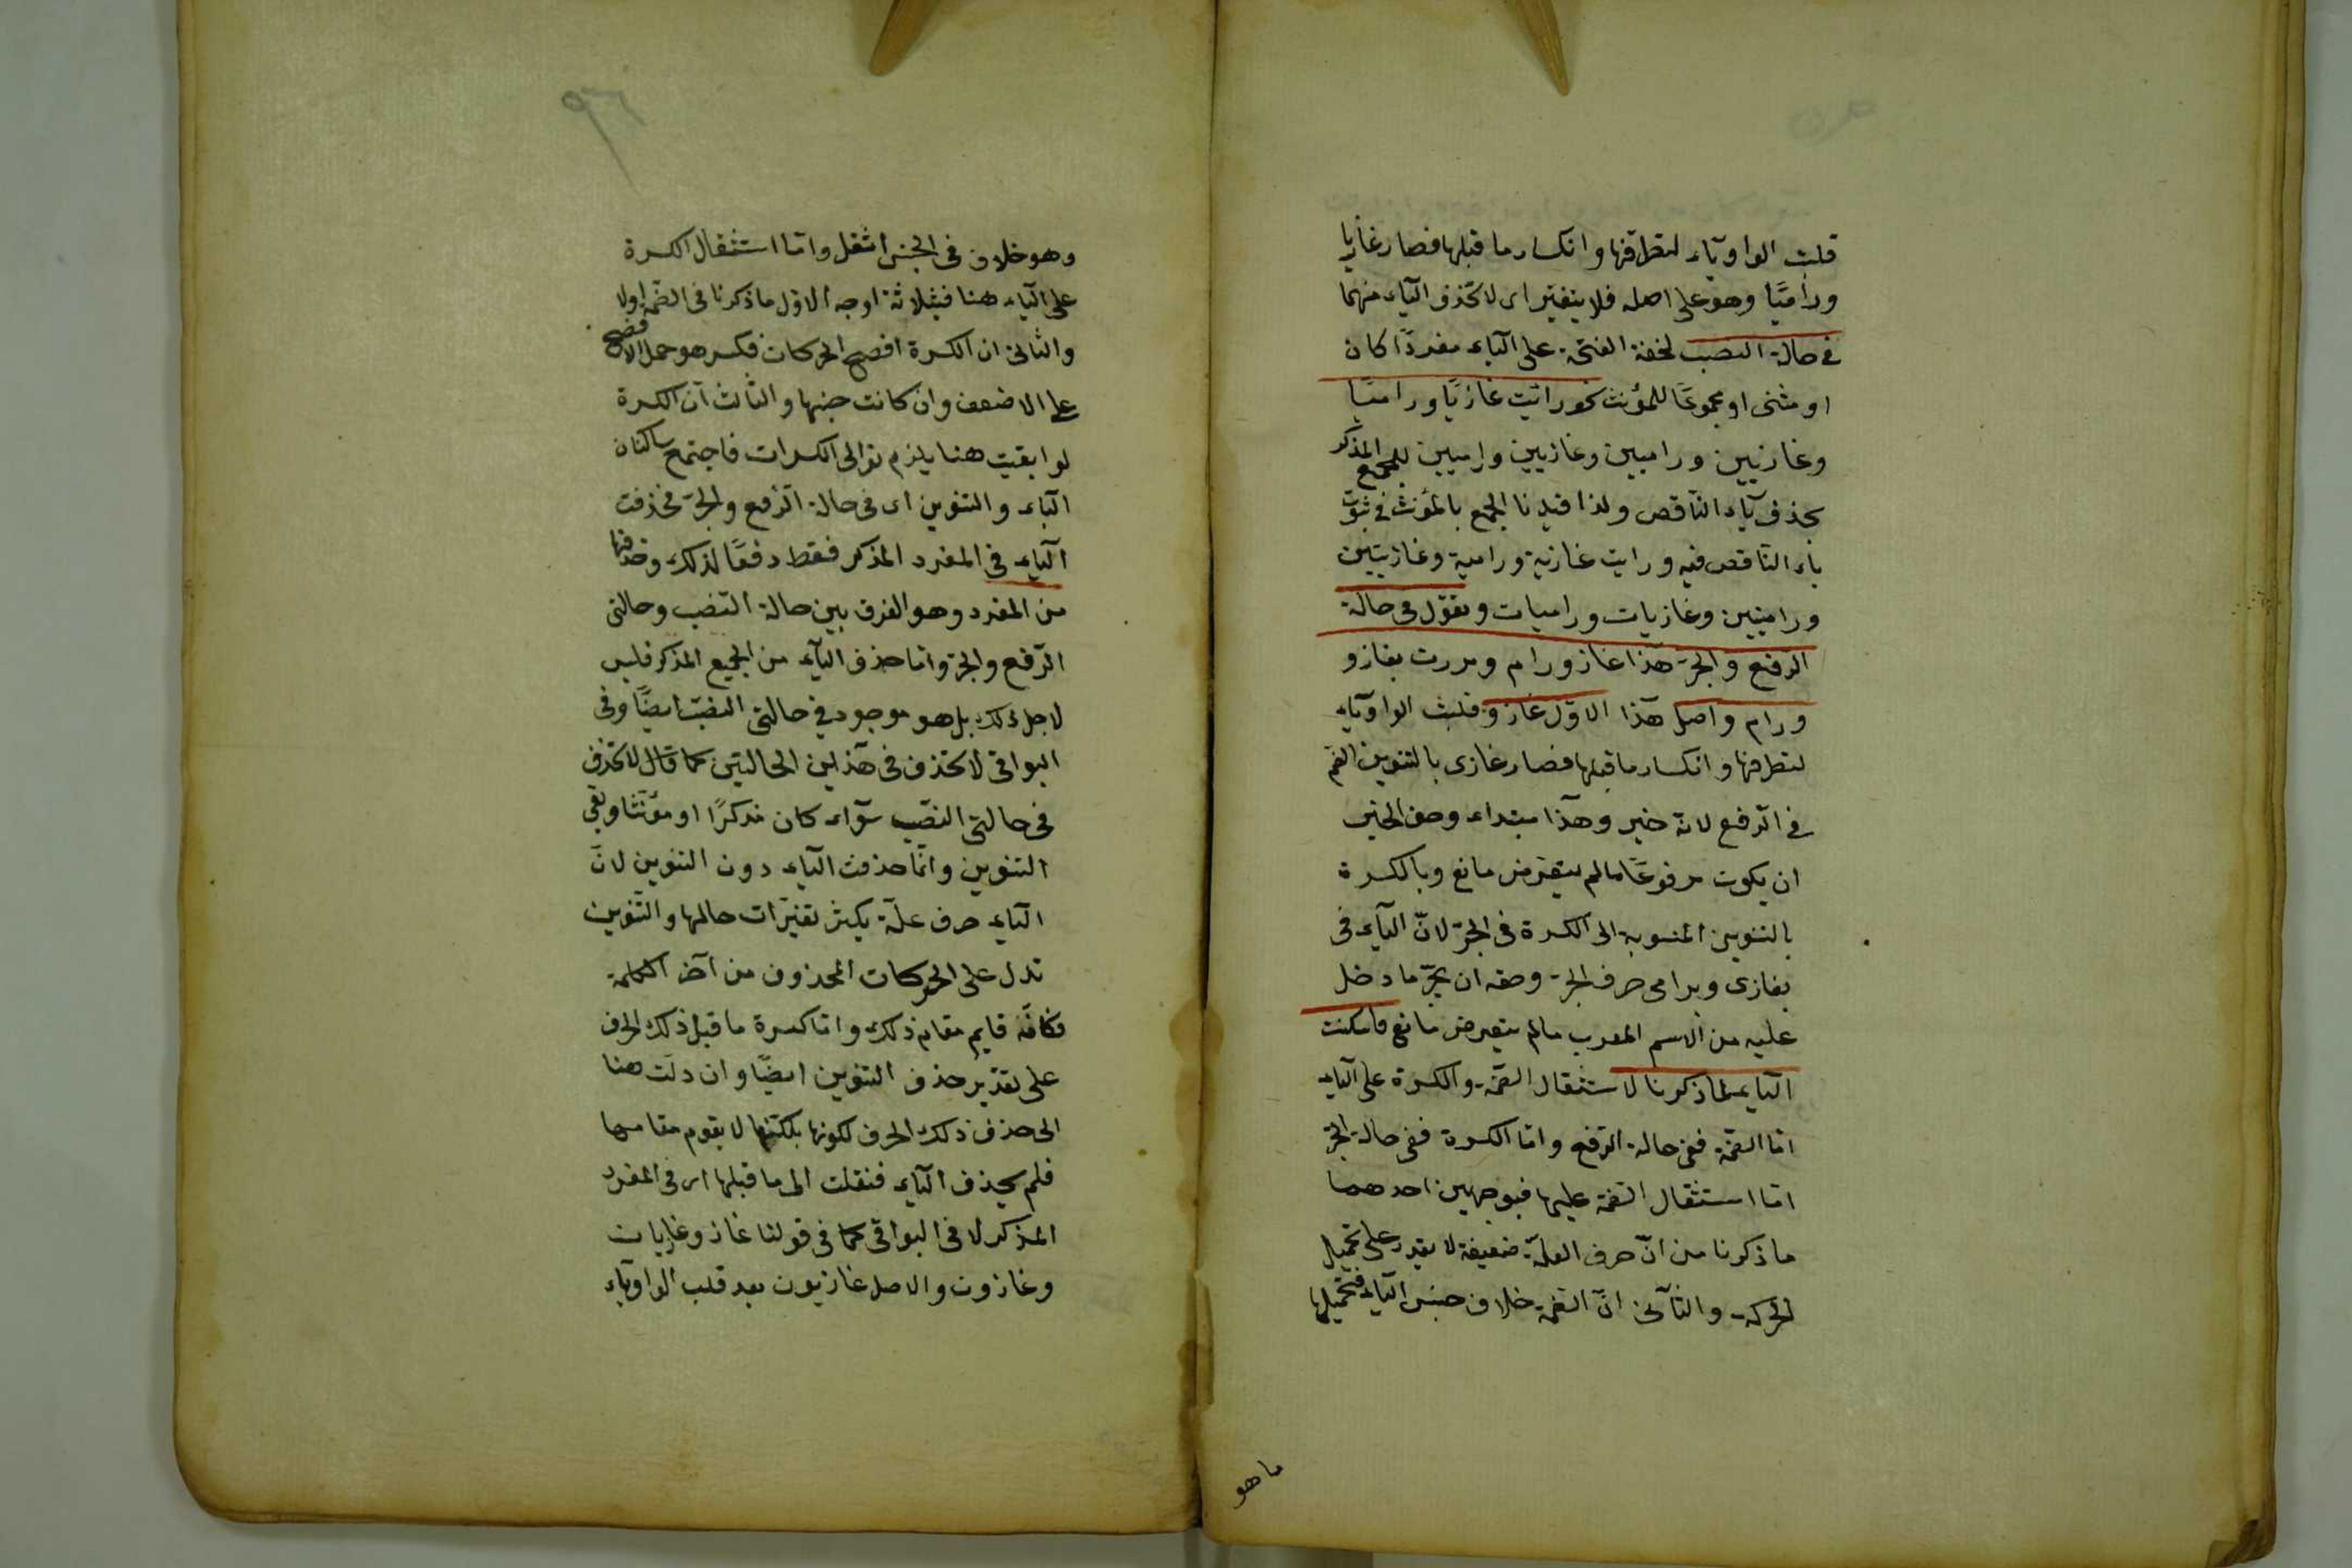 قلبت الواو ياء لتطرفها وانكسار ما قبلها فصار غازيا
وراميًا وهو على اصله فلا يتغير اى لا تحذف الياء منهما
فى حالة النصب لخفة الفتحة على الياء مفردًا كان
او مثنى او مجموعًا للمؤنث نحو رائيت غازيًا وراميًا
وغازيين وراميين وغازيين وراميين للجمع المذكر
بحذف ياء الناقص ولذا قيدنا الجمع بالمؤنث فى ثبوت
ياء الناقص فيه ورايت غازية ورامية وغازيتين
وراميتين وغازيات وراميات وتقول فى حالة
الرفع والجر هذا غاز ورام ومررت بغاز و
ورام واصل هذا الاول غازو قلبت الواو ياء
لتطرفها وانكسار ما قبلها فصار غازى بالتنوين الضم
فى الرفع لانه خبر وهذا مبتداء وحق الخبر
ان يكون مرفوعًا مالم يتعرض مانع وبالكسرة
بالتنوين المنسوبة الى الكسرة فى الجر لان الياء فى
بغازى وبرامى حرف الجر وحقه ان يجر ما دخل
عليه من الاسم المعرب مالم يتعرض مانع فاسكنت
الياء لما ذكرنا لاستثقال الضمة والكسرة على الياء
اما الضمة ففى حالة الرفع واما الكسرة ففى حالة الجر
اما استثقال الضمة عليها فبوجهين احدهما
ما ذكرنا من ان حرف العلة ضعيفة لا يقدر على تحميل
الحركة والثانى ان الضمة خلاف جنس الياء فتحميلها
ما هو
٩٦
وهو خلاف فى الجنس اثقل واما استثقال الكسرة
على الياء هنا فبثلاثة اوجه الاول ما ذكرنا فى الضمة اولا
والثانى ان الكسرة افصح الحركات فكسر هو حمل الافصح
على الاضعف وان كانت جنسها والثالث ان الكسرة
لو ابقيت هنا يلزم توالى الكسرات فاجتمع ساكنان
الياء والتنوين اى فى حالة الرفع والجر فحذفت
الياء فى المفرد المذكر فقط دفعًا لذلك وحذفها
من المفرد وهو الفرق بين حالة النصب وحالتى
الرفع والجر واما حذف الياء من الجمع المذكر فليس
لاجل ذلك بل هو موجود فى حالتى النصب ايضًا وفى
البواقى لا تحذف فى هذين الحالتين كما قال لا تحذف
فى حالتى النصب سواء كان مذكرًا او مؤنثا وبقى
التنوين وانما حذفت الياء دون التنوين لان
الياء حرف علة يكثر تغيرات حالها والتنوين
تدل على الحركات المحذوف من آخر الكلمة
فكانه قايم مقام ذلك واما كسرة ما قبل ذلك الحرف
على تقدير حذف التنوين ايضًا وان دلت هنا
الى حذف ذلك الحرف لكونها لا يقوم مقامها
فلم يحذف الياء فنقلت الى ما قبلها اى فى المفرد
المذكر لا فى البواقى كما فى قولنا غاز وغازيات
وغازون والاصل غازيون بعد قلب الواو ياء